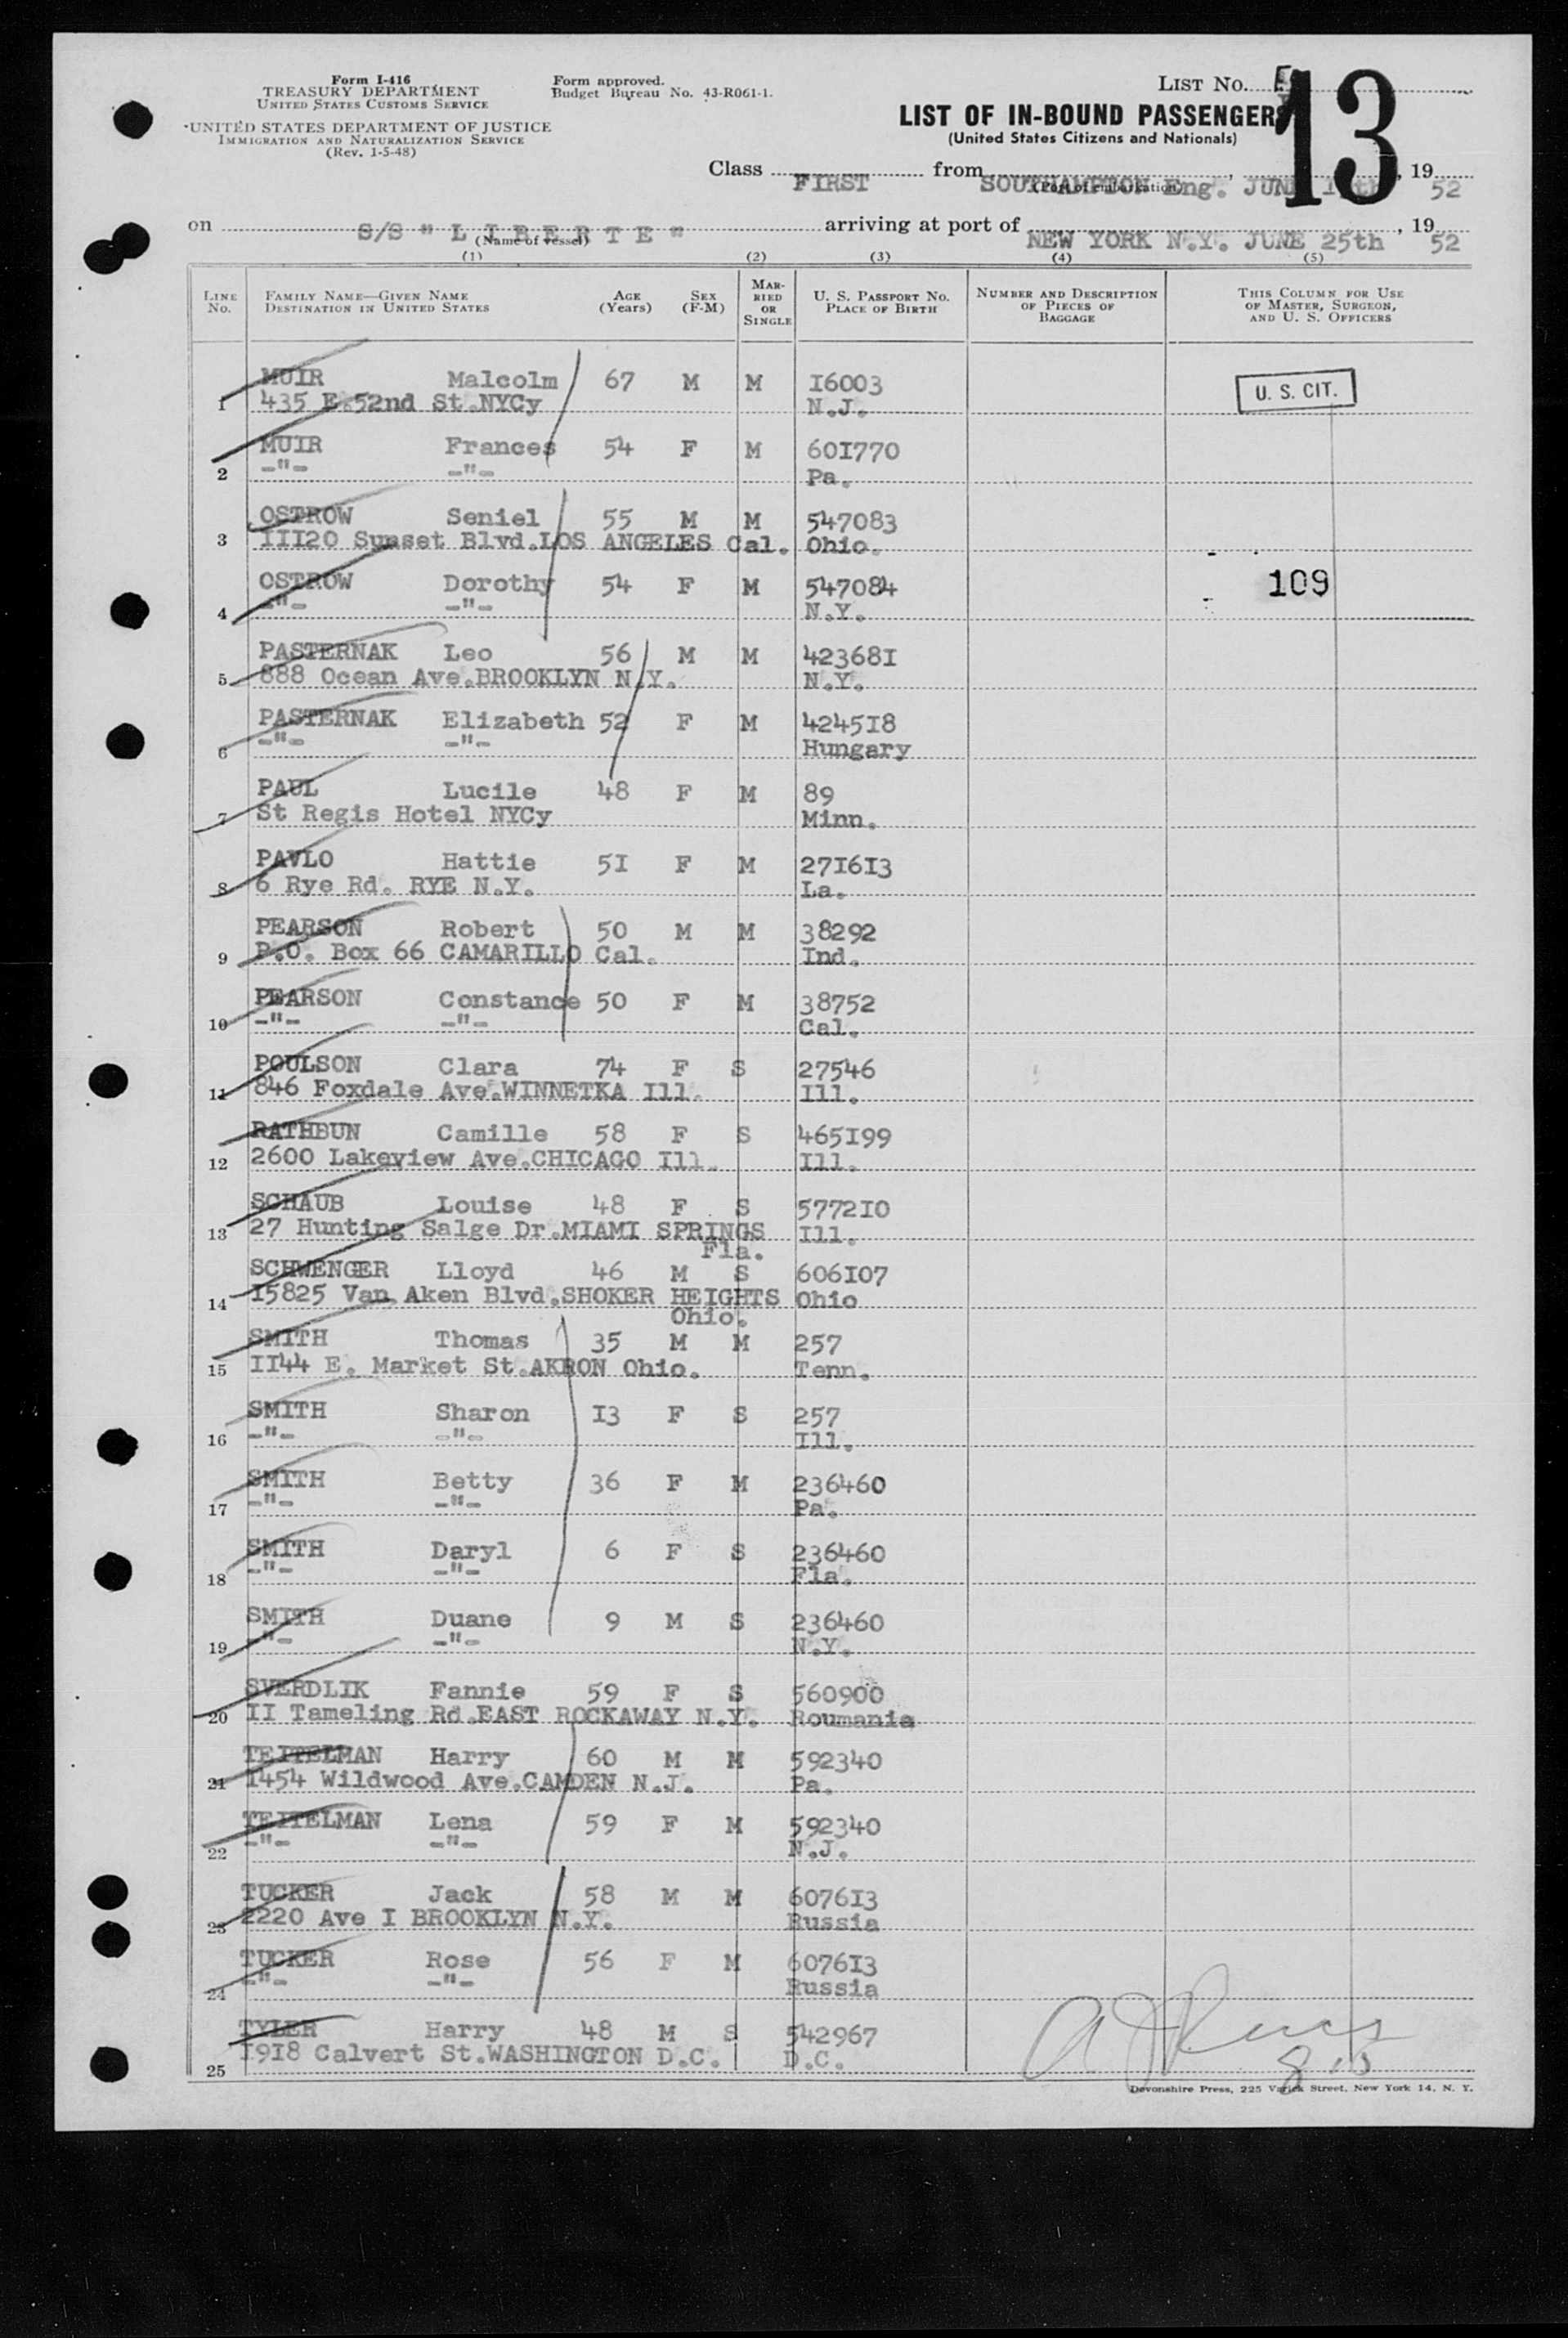 Form I-416
TREASURY DEPARTMENT
UNITED STATES CUSTOMS SERVICE
UNITED STATES DEPARTMENT OF JUSTICE
IMMIGRATION AND NATURALIZATION SERVICE
(Rev. 1-5-48)
Form approved.
Budget Bureau No. 43-R061-1.
LIST No.
13
LIST OF IN-BOUND PASSENGERS
(United States Citizens and Nationals)
Class FIRST from SOUTHAMPTON Eng. JUNE , 19 52
(Port of embarkation)
on S/S " L I B E R T E " arriving at port of NEW YORK N.Y. JUNE 25th , 19 52
(Name of vessel)
(1) (2) (3) (4) (5)
LINE No. FAMILY NAME—GIVEN NAME DESTINATION IN UNITED STATES AGE (Years) SEX (F-M) MARRIED OR SINGLE U. S. PASSPORT No. PLACE OF BIRTH NUMBER AND DESCRIPTION OF PIECES OF BAGGAGE THIS COLUMN FOR USE OF MASTER, SURGEON, AND U. S. OFFICERS
MUIR Malcolm 67 M M I6003 U. S. CIT.
1 435 E.52nd St.NYCy N.J.
MUIR Frances 54 F M 60I770
2 -"- -"- Pa.
OSTROW Seniel 55 M M 547083
3 III20 Sunset Blvd.LOS ANGELES Cal. Ohio.
OSTROW Dorothy 54 F M 547084 109
4 -"- -"- N.Y.
PASTERNAK Leo 56 M M 42368I
5 888 Ocean Ave.BROOKLYN N.Y. N.Y.
PASTERNAK Elizabeth 52 F M 4245I8
6 -"- -"- Hungary
PAUL Lucile 48 F M 89
7 St Regis Hotel NYCy Minn.
PAVLO Hattie 5I F M 27I6I3
8 6 Rye Rd. RYE N.Y. La.
PEARSON Robert 50 M M 38292
9 P.O. Box 66 CAMARILLO Cal. Ind.
PEARSON Constance 50 F M 38752
10 -"- -"- Cal.
POULSON Clara 74 F S 27546
11 846 Foxdale Ave.WINNETKA Ill. Ill.
RATHBUN Camille 58 F S 465I99
12 2600 Lakeview Ave.CHICAGO Ill. Ill.
SCHAUB Louise 48 F S 5772I0
13 27 Hunting Salge Dr.MIAMI SPRINGS Ill.
Fla.
SCHWENGER Lloyd 46 M S 606I07
14 I5825 Van Aken Blvd.SHOKER HEIGHTS Ohio
Ohio.
SMITH Thomas 35 M M 257
15 II44 E. Market St.AKRON Ohio. Tenn.
SMITH Sharon I3 F S 257
16 -"- -"- Ill.
SMITH Betty 36 F M 236460
17 -"- -"- Pa.
SMITH Daryl 6 F S 236460
18 -"- -"- Fla.
SMITH Duane 9 M S 236460
19 -"- -"- N.Y.
SVERDLIK Fannie 59 F S 560900
20 II Tameling Rd.EAST ROCKAWAY N.Y. Roumania
TEITELMAN Harry 60 M M 592340
21 I454 Wildwood Ave.CAMDEN N.J. Pa.
TEITELMAN Lena 59 F M 592340
22 -"- -"- N.J.
TUCKER Jack 58 M M 6076I3
23 2220 Ave I BROOKLYN N.Y. Russia
TUCKER Rose 56 F M 6076I3
24 -"- -"- Russia
TYLER Harry 48 M S 542967
25 I9I8 Calvert St.WASHINGTON D.C. D.C.
Devonshire Press, 225 Varick Street, New York 14, N. Y.